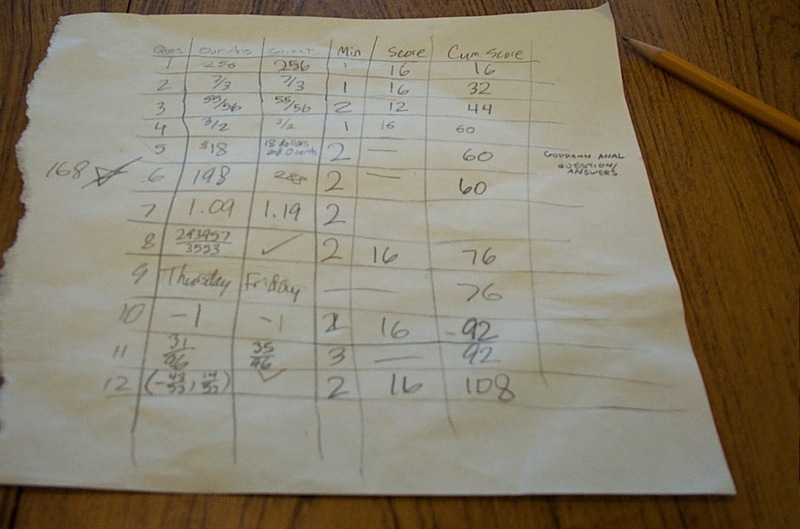 Ques Our Ans Correct Min Score Cum. Score
1 256 256 1 16 16
2 7/3 7/3 1 16 32
3 55/56 55/56 2 12 44
4 3/2 3/2 1 16 60
5 $18 18 dollars and 0 cents 2 — 60 GODDAMN ANAL QUESTION/ANSWERS
168 6 198 288 2 — 60
7 1.09 1.19 2
8 243957/3553 ✓ 2 16 76
9 Thursday Friday — — 76
10 -1 -1 16 92
11 31/46 35/46 3 — 92
12 ✓ 2 16 108